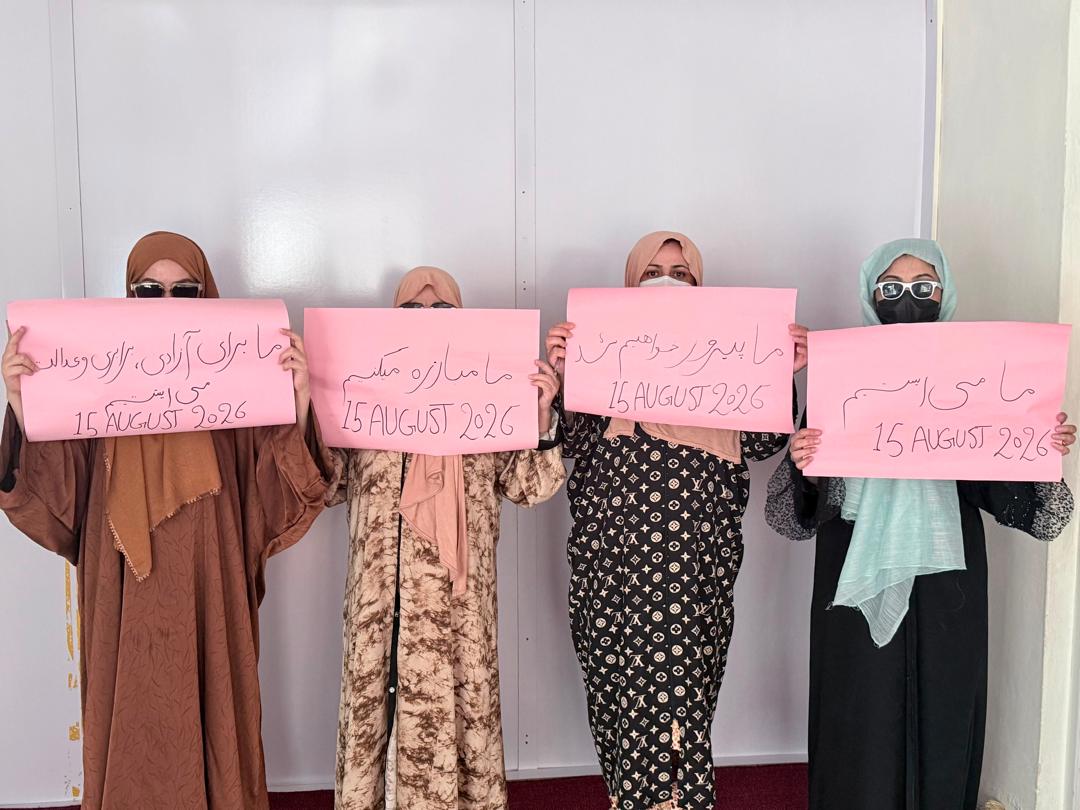 ما می ایستیم
15 AUGUST 2026
ما پیروز خواهیم شد
15 AUGUST 2026
ما مبارزه میکنیم
15 AUGUST 2026
ما برای آزادی، برابری و عدالت
می ایستیم
15 AUGUST 2026